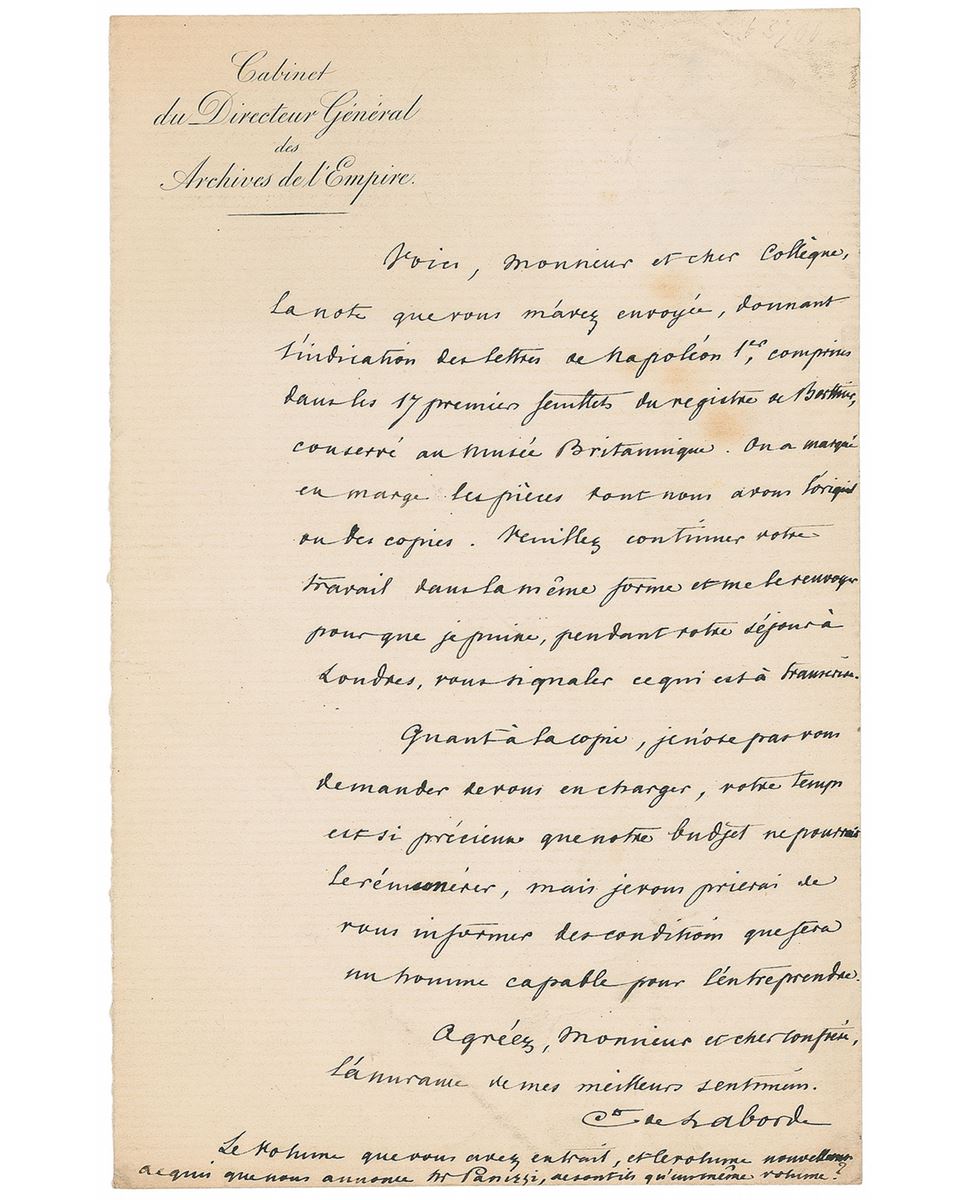 Cabinet
du Directeur Général
des
Archives de l'Empire.
Voici, Monsieur et cher Collègue,
la note que vous m'avez envoyée, donnant
l'indication des lettres de Napoléon 1er, comprises
dans les 17 premiers feuillets du registre de Berthier,
conservé au Musée Britannique. On a marqué
en marge les pièces dont nous avons l'original
ou des copies. Veuillez continuer votre
travail dans la même forme et me le renvoyer
pour que je puisse, pendant votre séjour à
Londres, vous signaler ce qui est à transcrire.
Quant à la copie, je n'ose pas vous
demander de vous en charger, votre temps
est si précieux que notre budget ne pourrait
le rémunérer, mais je vous prierai de
vous informer des conditions que fera
un homme capable pour l'entreprendre.
Agréez, Monsieur et cher Confrère,
l'assurance de mes meilleurs sentimens.
Cte de Laborde
Le Volume que vous avez extrait, et le volume nouvellement
acquis que nous annonce Mr Panizzi, ne sont ils qu'un même volume?